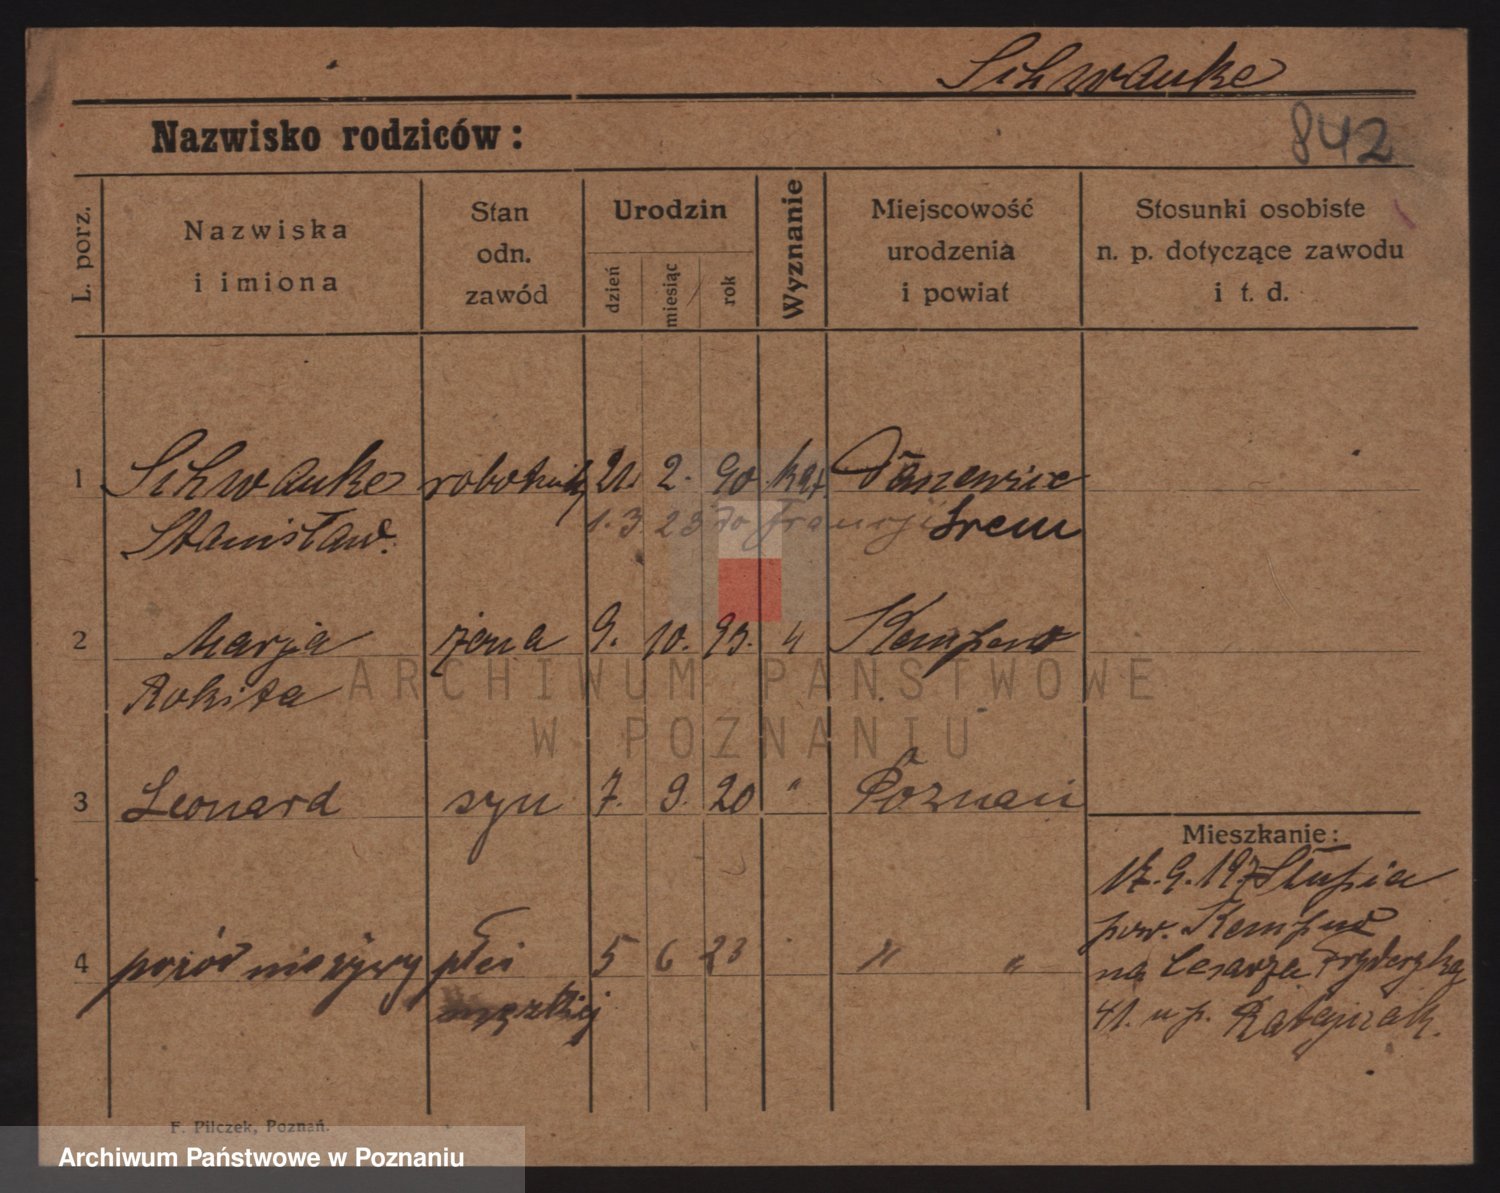 Schwanke
Nazwisko rodziców:
842
L. porz.
Nazwiska
i imiona
Stan
odn.
zawód
Urodzin
dzień
miesiąc
rok
Wyznanie
Miejscowość
urodzenia
i powiat
Stosunki osobiste
n. p. dotyczące zawodu
i t. d.
1 Schwanke robotnik 21. 2. 90. kat
Stanisław. 1. 3. 23 do Francji Śrem
2 Marja żona 9. 10. 93. " Kempno
Rokita
ARCHIWUM PAŃSTWOWE
W POZNANIU
3 Leonard syn 7. 9. 20 " Poznań
Mieszkanie:
17. 9. Słupia
pow. Kempno
4 poród nieżywy płci 5 6 23 " "
na Cesarza Fryderyka
męzkiej
41. u p. Ratajczak.
F. Pilczek, Poznań.
Archiwum Państwowe w Poznaniu